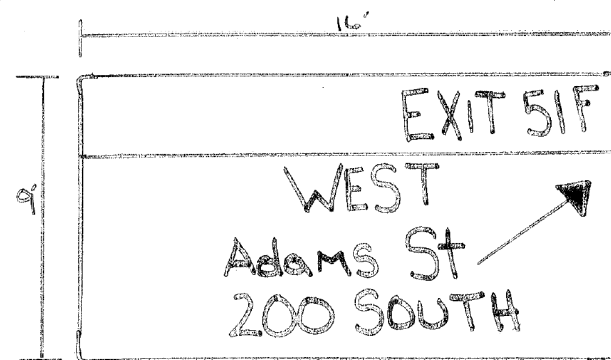 16'
9'
EXIT 51F
WEST
Adams St
200 SOUTH